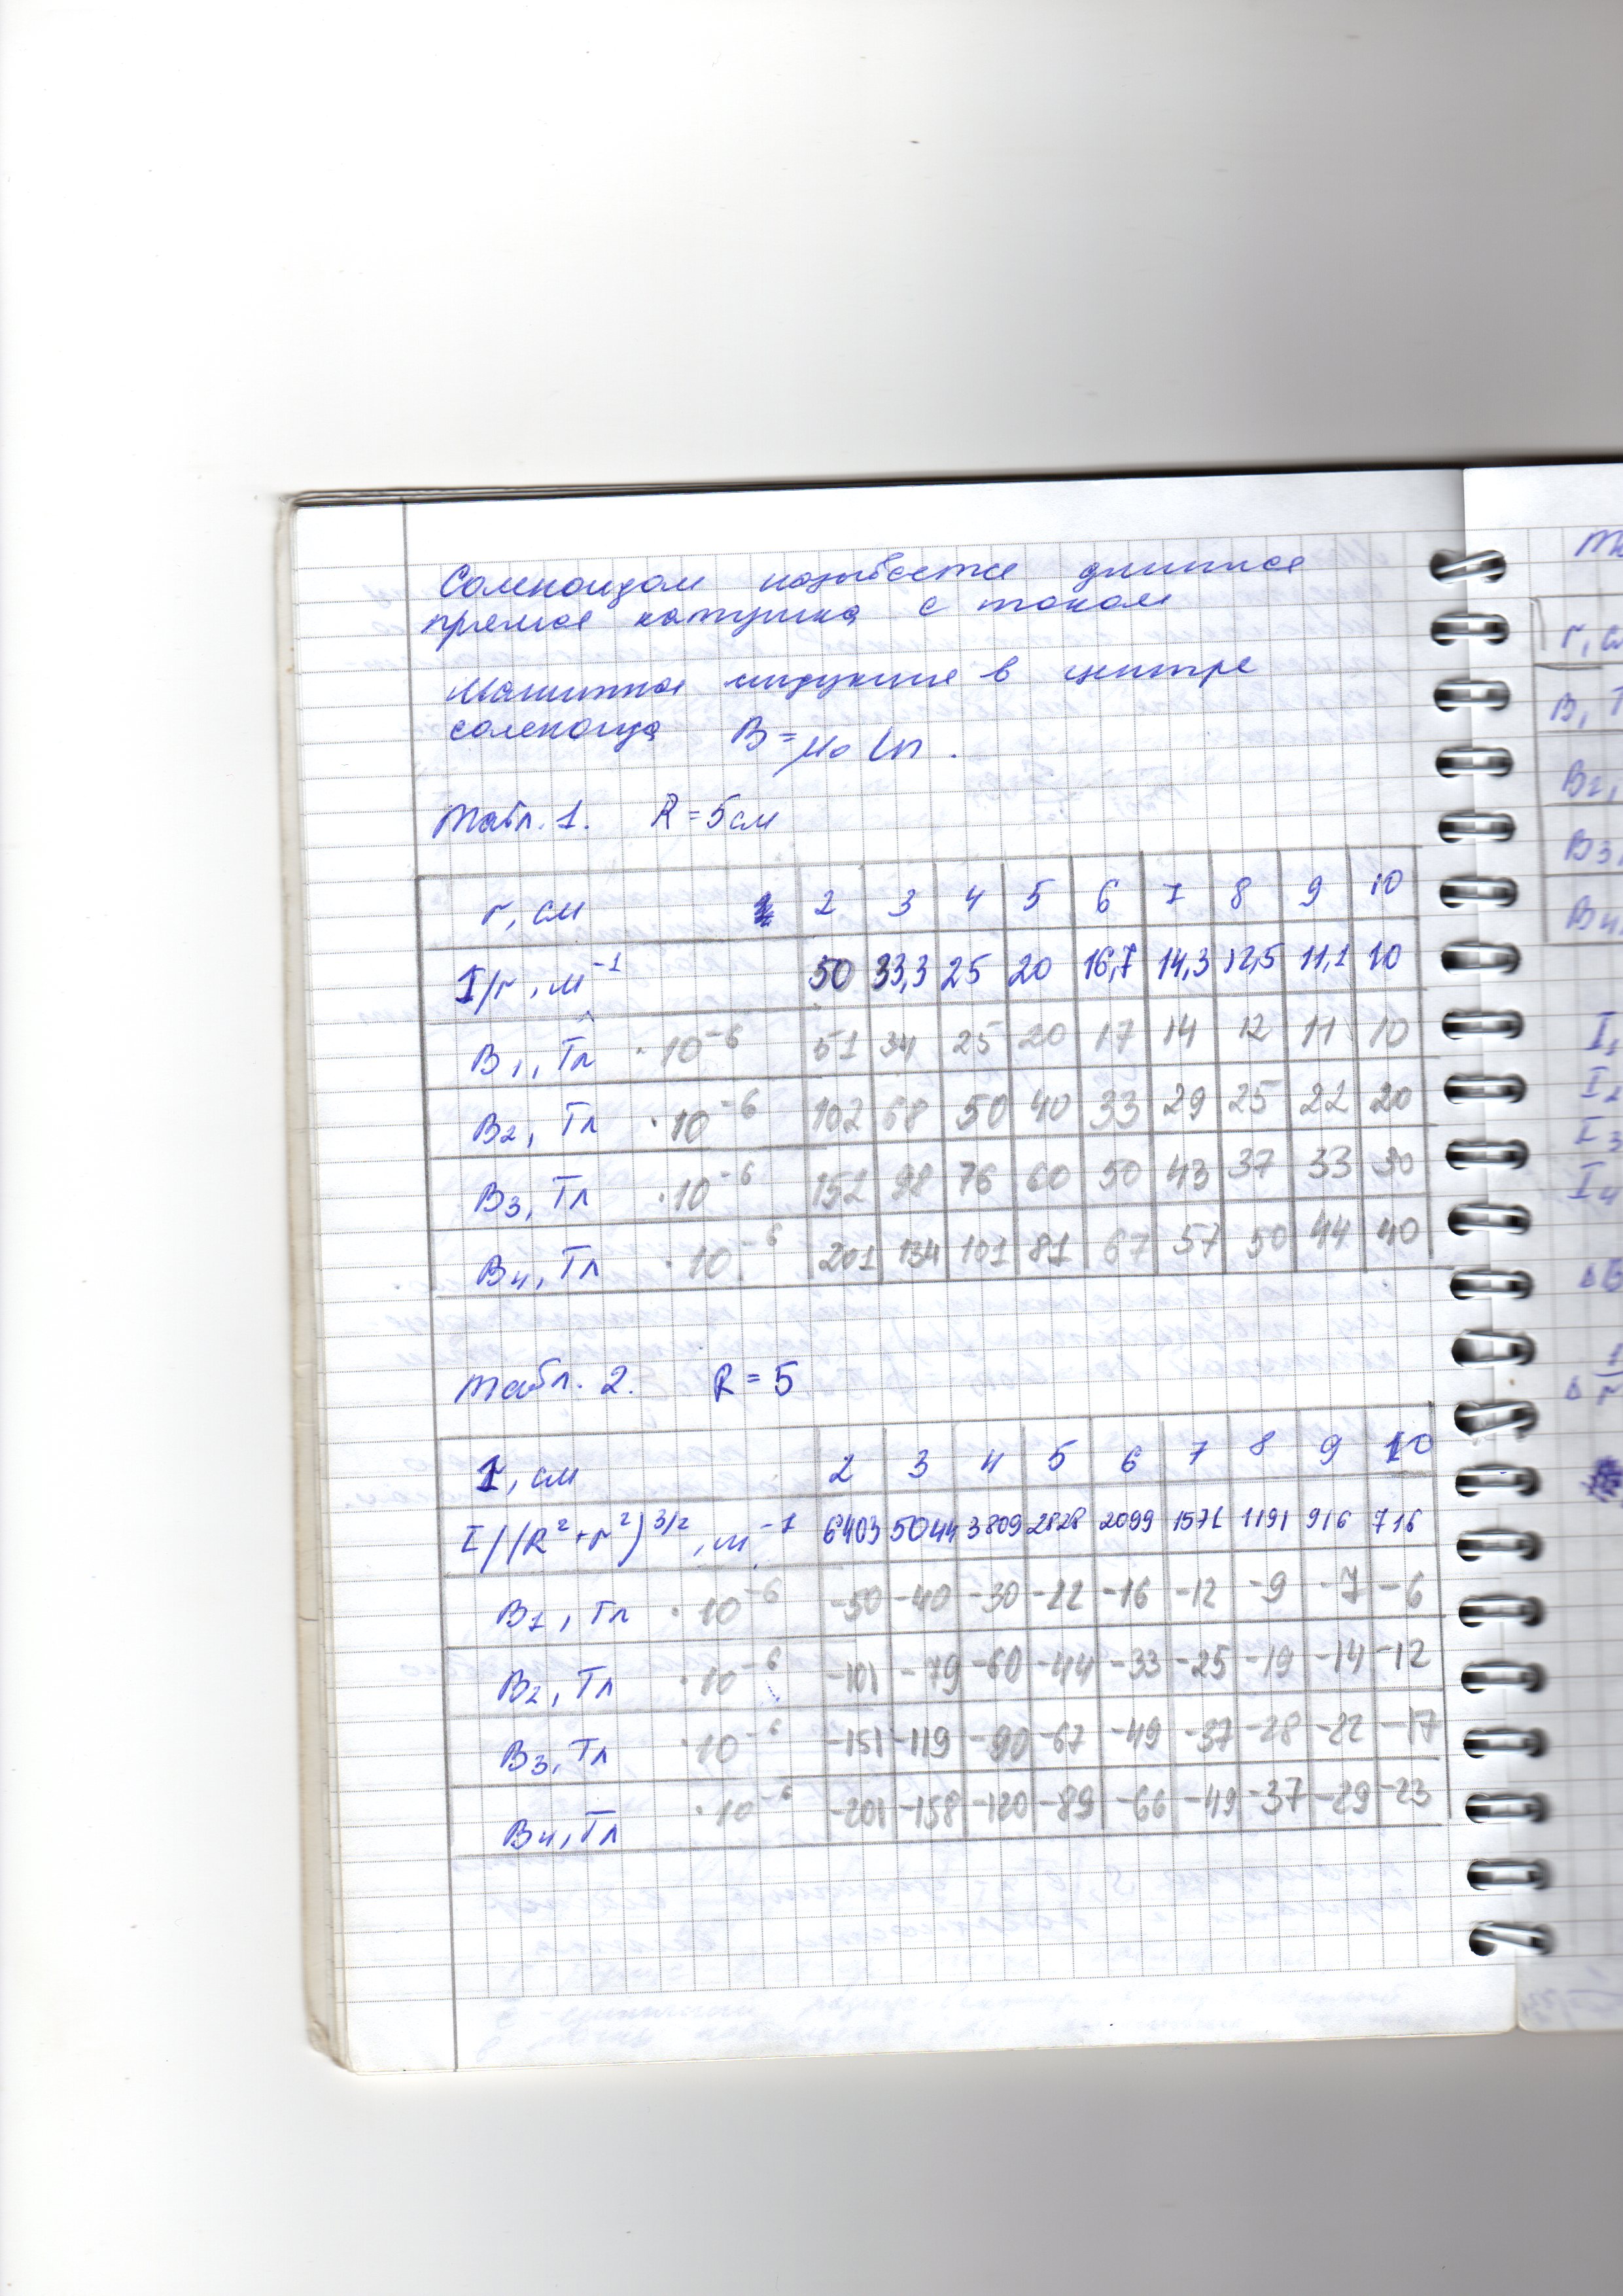 Соленоидом называется длинная
прямая катушка с током
Магнитная индукция в центре
соленоида B = μ₀ In.
Табл. 1. R = 5 см
r, см 2 3 4 5 6 7 8 9 10
1/r, м⁻¹ 50 33,3 25 20 16,7 14,3 12,5 11,1 10
B₁, Тл ·10⁻⁶ 51 34 25 20 17 14 12 11 10
B₂, Тл ·10⁻⁶ 102 68 50 40 33 29 25 22 20
B₃, Тл ·10⁻⁶ 152 98 76 60 50 43 37 33 30
B₄, Тл ·10⁻⁶ 201 134 101 81 67 57 50 44 40
Табл. 2. R = 5
r, см 2 3 4 5 6 7 8 9 10
1/(R²+r²)^3/2, м⁻¹ 6403 5044 3809 2828 2099 1571 1191 916 716
B₁, Тл ·10⁻⁶ -50 -40 -30 -22 -16 -12 -9 -7 -6
B₂, Тл ·10⁻⁶ -101 -79 -60 -44 -33 -25 -19 -14 -12
B₃, Тл ·10⁻⁶ -151 -119 -90 -67 -49 -37 -28 -22 -17
B₄, Тл ·10⁻⁶ -201 -158 -120 -89 -66 -49 -37 -29 -23
r, с
B₁ Т
B₂,
B₃
B₄
I₁
I₂
I₃
I₄